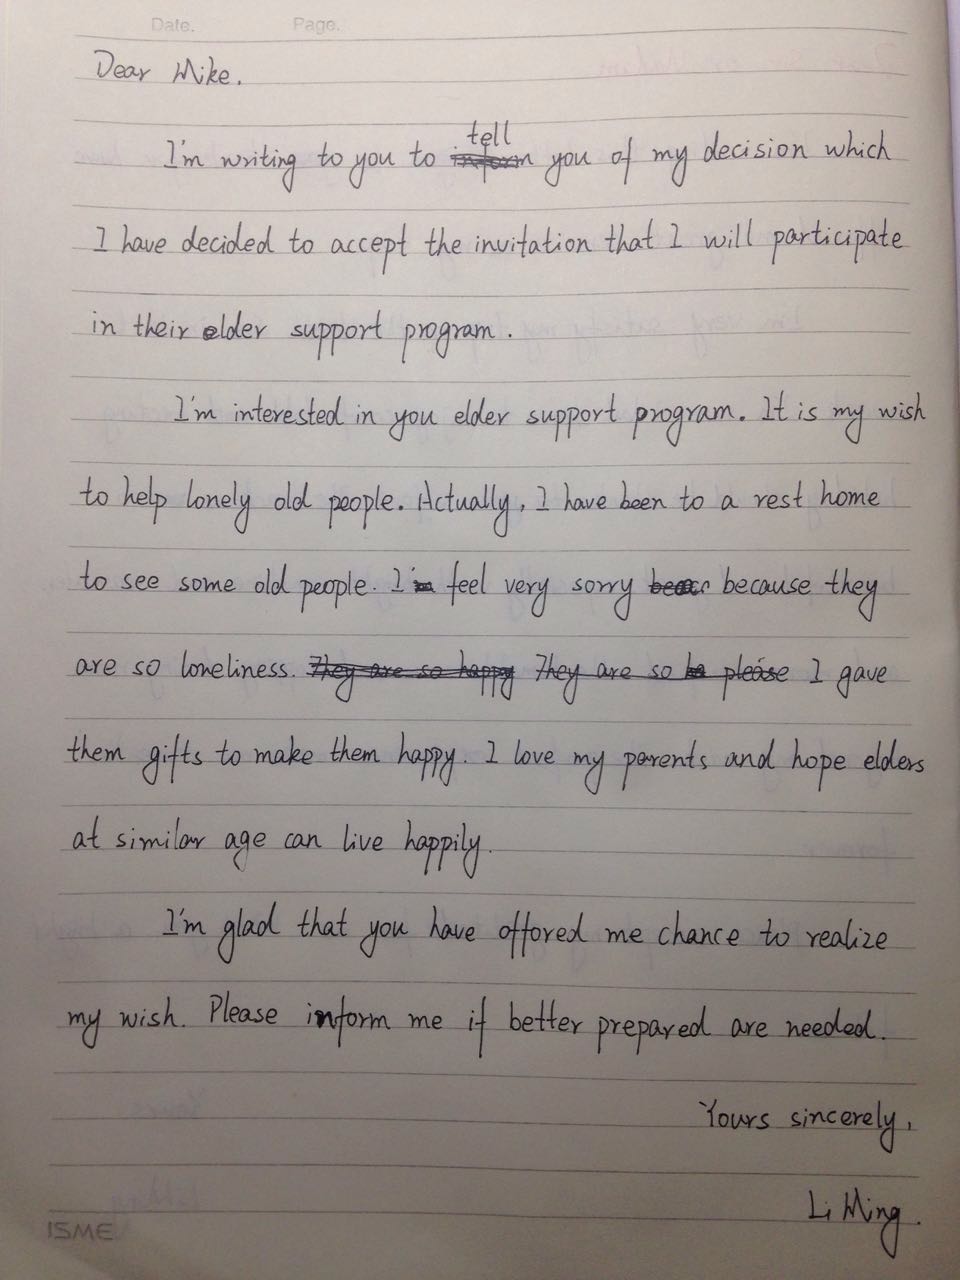 Date. Page.
Dear Mike.
tell
I'm writing to you to inform you of my decision which
I have decided to accept the invitation that I will participate
in their elder support program.
I'm interested in you elder support program. It is my wish
to help lonely old people. Actually, I have been to a rest home
to see some old people. I'm feel very sorry because they
are so loneliness. They are so happy They are so please I gave
them gifts to make them happy. I love my parents and hope elders
at similar age can live happily.
I'm glad that you have offored me chance to realize
my wish. Please inform me if better prepared are needed.
Yours sincerely,
Li Ming.
ISME